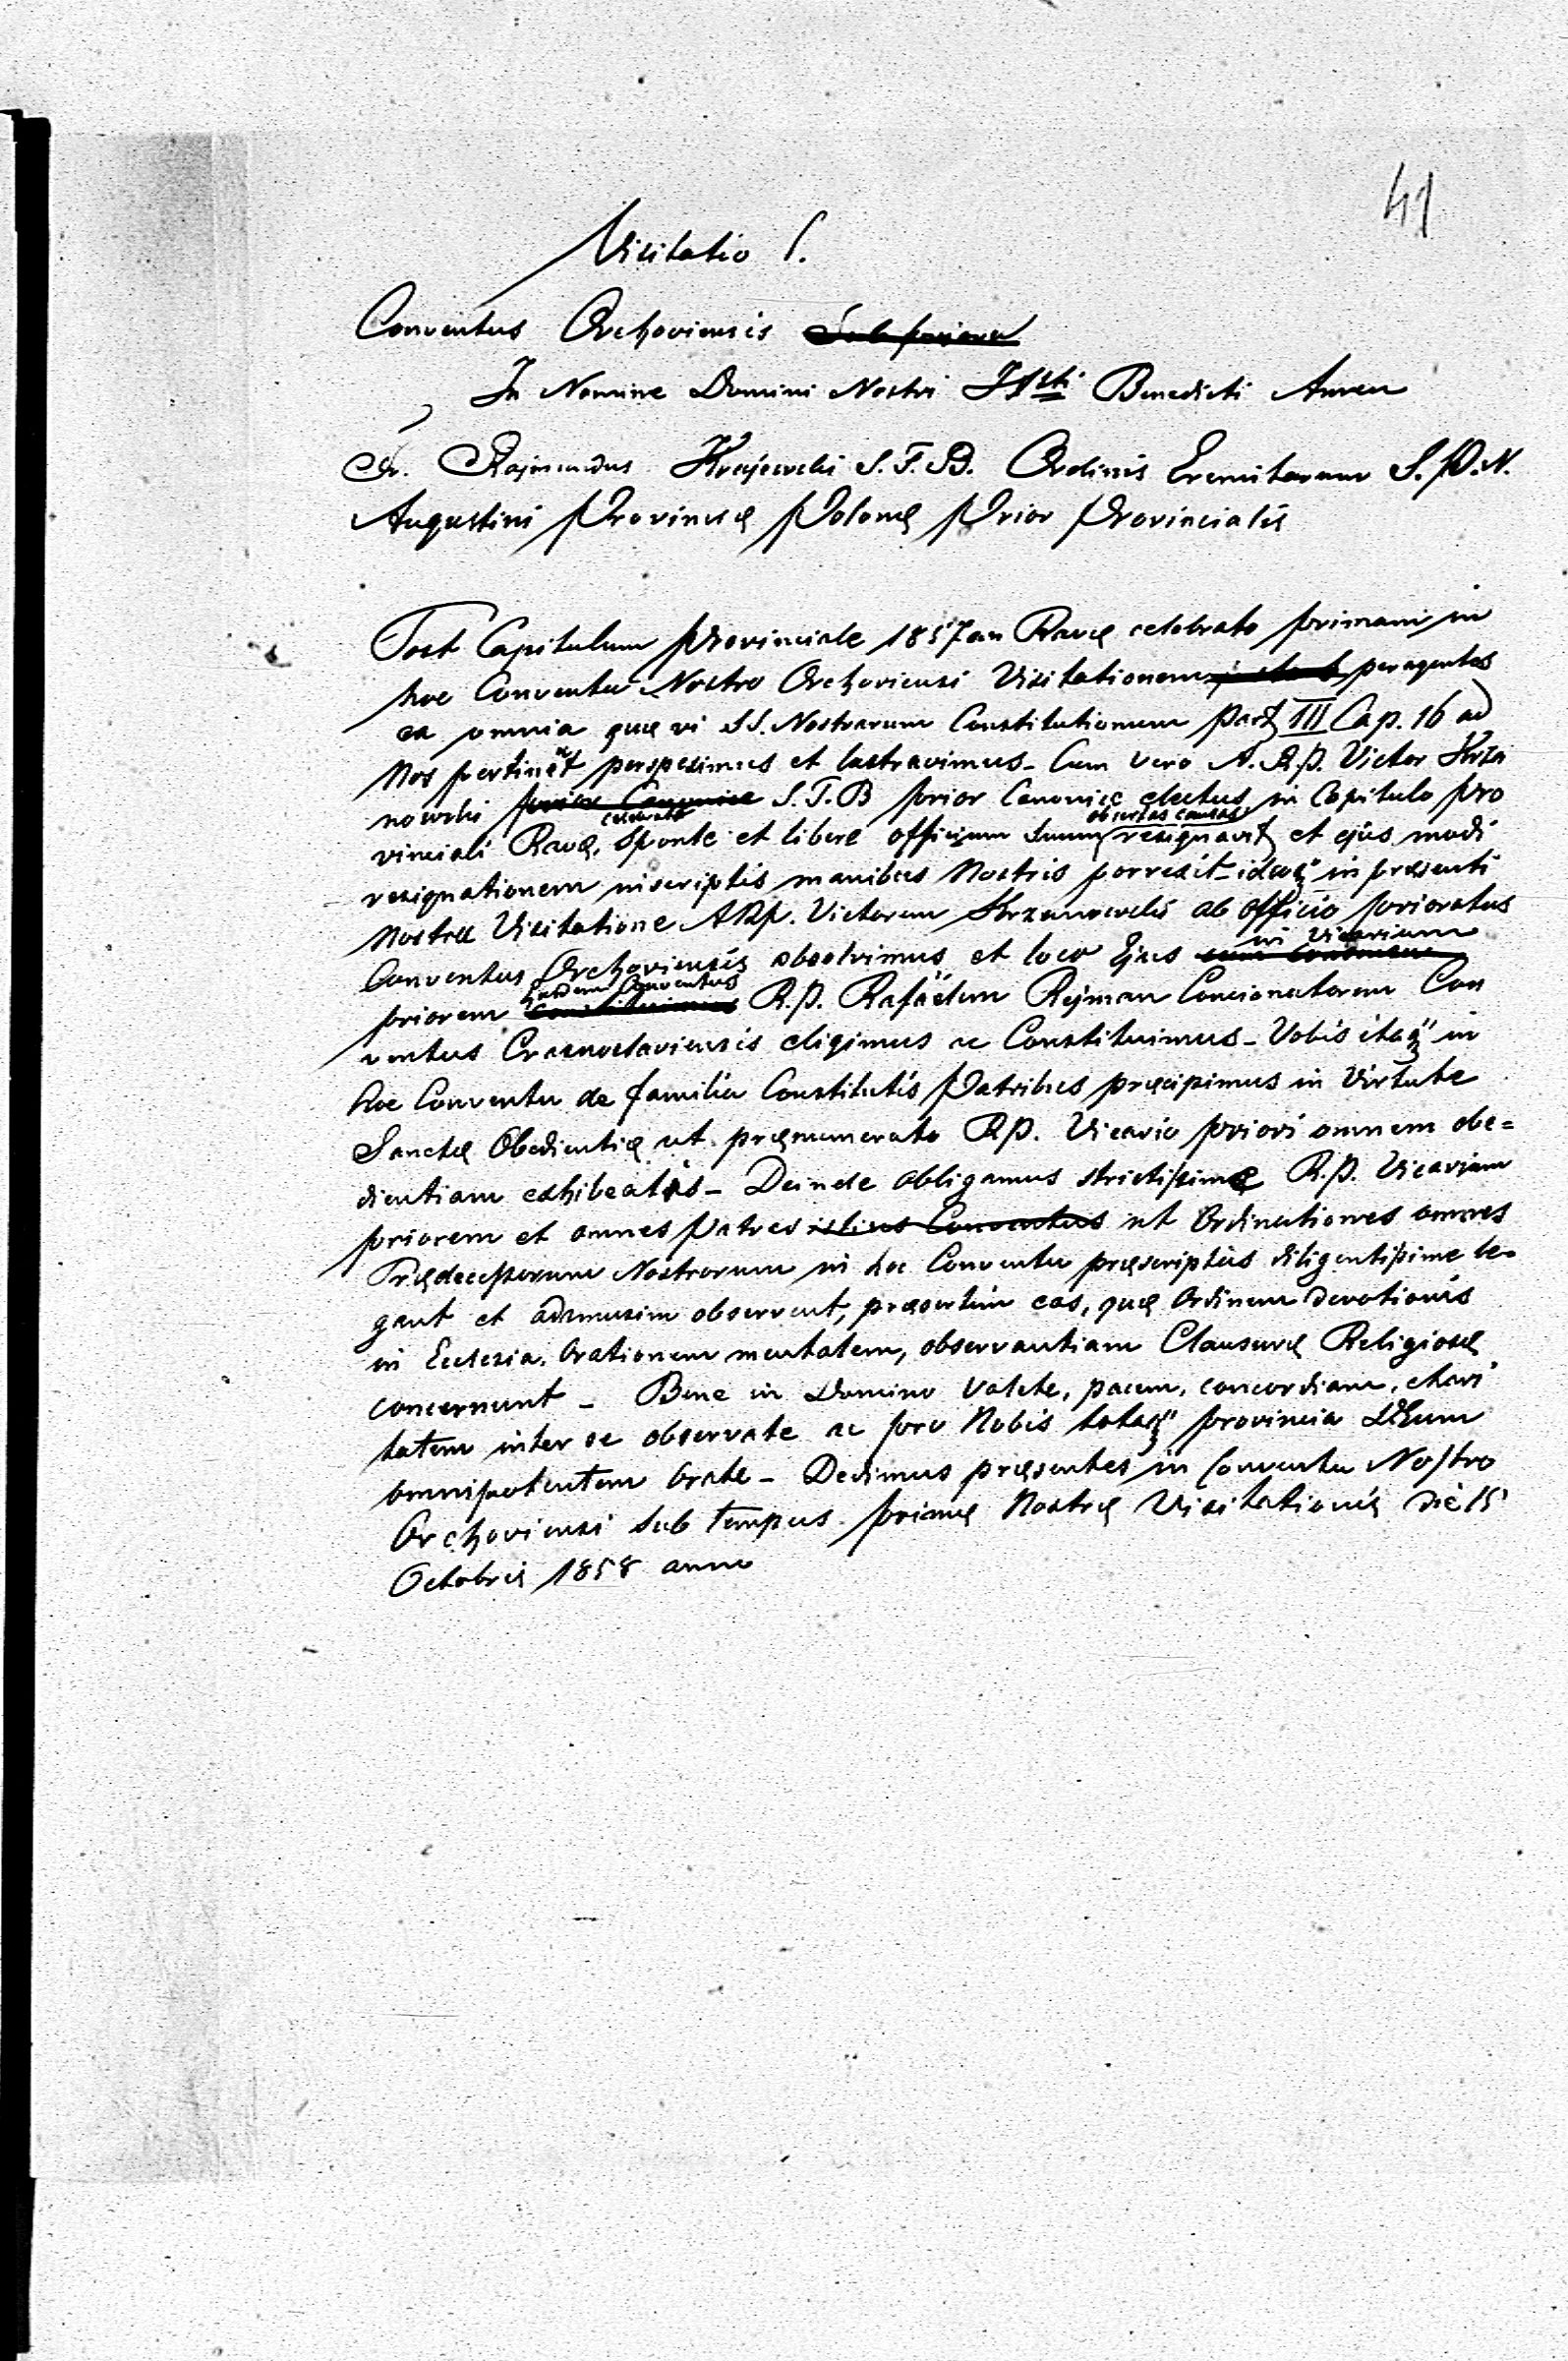 41
Visitatio I.
Conventus Orchoviensis ~~Sub priore~~
In Nomine Domini Nostri J Xsti Benedicti Amen
Fr. Rajmundus Krajewski S.T.B. Ordinis Eremitarum S.P.N.
Augustini Provinciæ Polonæ Prior Provincialis
Post Capitulum Provinciale 1857 an Ravæ celebrato primam in
hoc Conventu Nostro Orchoviensi Visitationem peragentes
ea omnia quæ vi SS. Nostrarum Constitutionum part III Cap. 16 ad
Nos pertineat perspeximus et lustravimus – Cum vero A. R.P. Victor Krza
nowski ~~prior Canonice~~ S.T.B prior Canonice electus in Capitulo pro
vinciali Ravæ celebrato, sponte et libere officium suum ob certas causas resignavit et ejus modi
resignationem in scriptis manibus Nostris porrexit – ideoq in præsenti
Nostra Visitatione ARP. Victorem Krzanowski ab officio prioratus
Conventus Orchoviensis absolvimus et loco Ejus in Vicarium
priorem ejusdem Conventus ~~Constituimus~~ R.P. Rafaëlem Rejman Concionatorem Con
ventus Crasnostaviensis eligimus ac Constituimus – Vobis itaq in
hoc Conventu de familia Constitutis Patribus præcipimus in Virtute
Sanctæ Obedientiæ ut prænumerato RP. Vicario priori omnem obe=
dientiam exhibeatis – Deinde obligamus strictissime R.P. Vicarium
priorem et omnes Patres ~~istius Conventus~~ ut Ordinationes omnes
Prædecessorum Nostrorum in hoc Conventu præscriptas diligentissime le-
gant et adamusim observent, præsertim eas, quæ Ordinem devotionis
in Ecclesia, Orationem mentalem, observantiam Clausuræ Religiosæ
concernunt – Bene in Domino Valete, pacem, concordiam, chari
tatem inter se observate ac pro Nobis totaq provincia Deum
omnipotentem Orate – Dedimus præsentes in Conventu Nostro
Orchoviensi sub tempus primæ Nostræ Visitationis die 15
Octobris 1858 anno